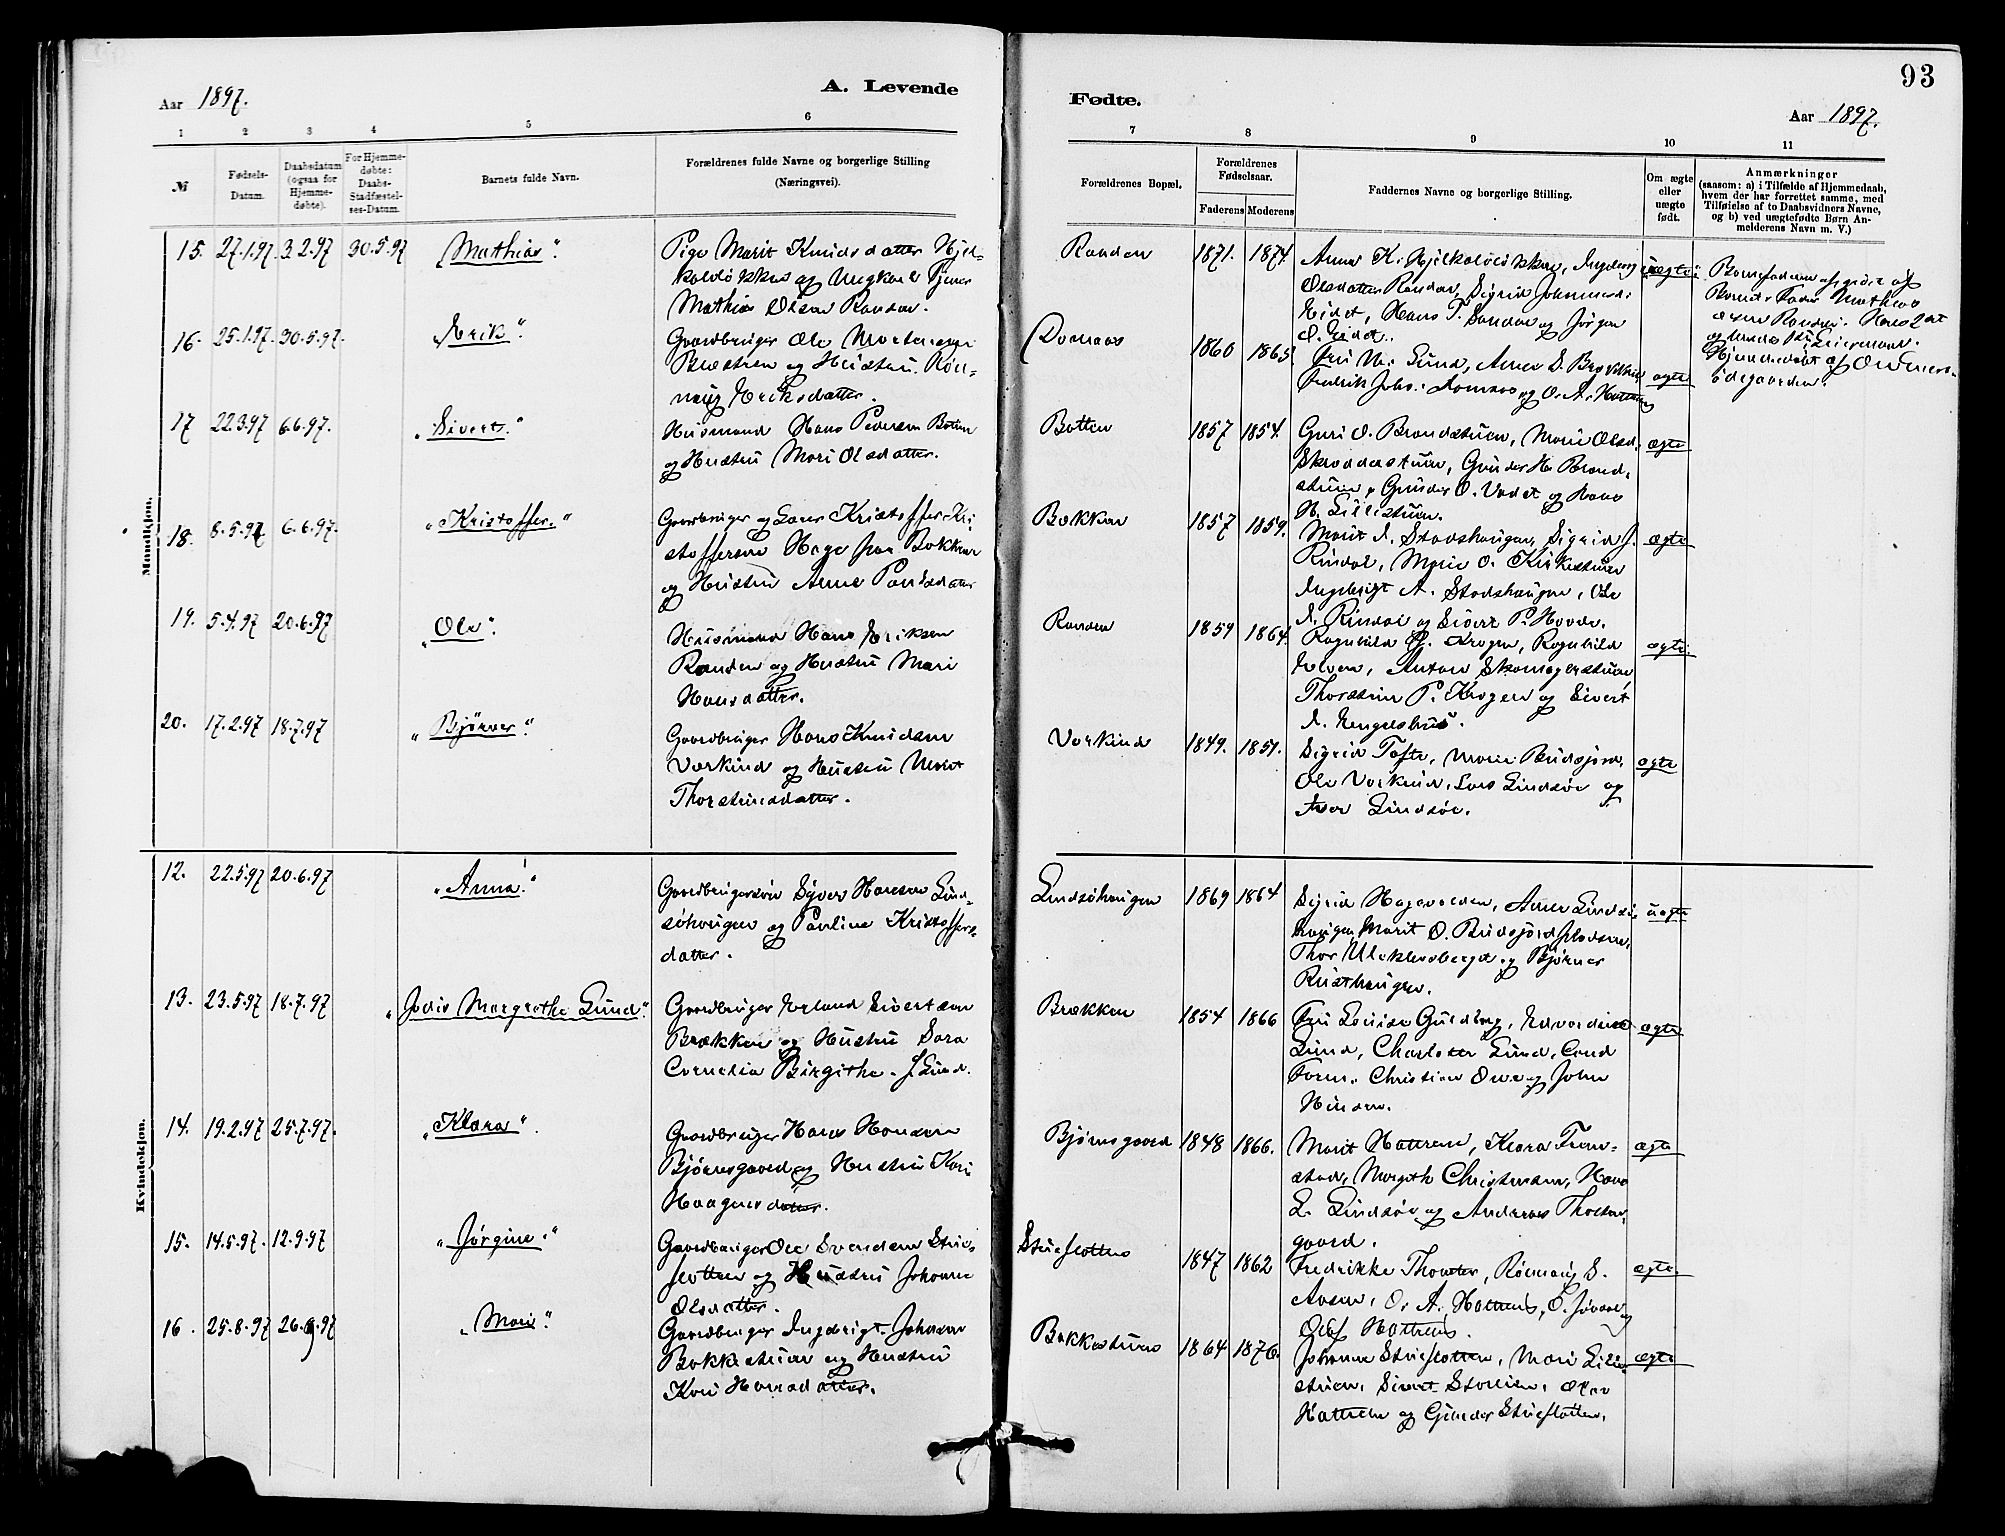 93
Aar 1897.
A. Levende
Fødte.
Aar 1897.
1 2 3 4 5 6
7 8 9 10 11
№
Fødsels-
Datum.
Daabsdatum
(ogsaa for
Hjemme-
døbte).
For Hjemme-
døbte:
Daabs-
Stadfæstel-
ses-Datum.
Barnets fulde Navn.
Forældrenes fulde Navne og borgerlige Stilling
(Næringsvei).
Forældrenes Bopæl.
Forældrenes
Fødselsaar.
Faderens Moderens
Faddernes Navne og borgerlige Stilling.
Om ægte
eller
uægte
født.
Anmærkninger
(saasom: a) i Tilfælde af Hjemmedaab,
hvem der har forrettet samme, med
Tilføielse af to Daabsvidners Navne,
og b) ved uægtefødte Børn An-
melderens Navn m. V.)
Mandkjøn.
15. 27.1.97. 3.2.97 30.5.97 „Mathias“
Pige Marit Knudsdatter Hjel-
koløkken og Ungkarl Tjener
Mathias Olsen Randen.
Randen 1871. 1874.
Olsdatter Randen, Sigrid Johannesd.
Eidet, Hans T. Sandan og Jørgen
O. Eidet.
uægte
Barnefaderen opgivet af
16. 25.1.97. 30.5.97. „Erik“
Gaardbruger Ole Mortensen
og Hustru Røn-
nøug Eriksdatter.
Domaas 1860 1865
ægte
17 22.3.97 6.6.97. „Sivert.“
Husmand Hans Pedersen Botten
og Hustru Mari Olsdatter.
Botten 1857 1854.
Guri O. Brandstuen, Marie Olsd.
Skredderstuen, Gunder H. Brand-
stuen, Gunder O. Vadet og Hans
H. Lillestuen.
ægte
18. 8.5.97 6.6.97. „Kristoffer.“
Gaardbruger og Lærer Kristoffer Kri
stoffersen Hage fra Bakken
og Hustru Anne Paulsdatter
Bakken 1857 1859.
Marit I. Stadshaugen, Sigrid J.
Rindal, Marie O. Kirkestuen
Ingebrigt A. Stadshaugen, Ole
I. Rindal og Sivert P. Hovde.
ægte
19. 5.4.97 20.6.97 „Ole“.
Husmand Hans Eriksen
Randen og Hustru Mari
Hansdatter.
Randen 1859 1864.
Ragnhild P. Krogen, Ragnhild
Elven, Anton Skomagerstuen
Thorstein P. Krogen og Sivert
I. Engelshus.
ægte.
20. 17.2.97 18.7.97 „Bjørner“
Gaardbruger Hans Knudsen
Vorkind og Hustru Marit
Thorsteinsdatter.
Vorkind 1849. 1851.
Sigrid Tofte, Marie Budsjord,
Ole Vorkind, Lars Lindsøe og
Iver Lindsøe.
ægte
Kvindekjøn.
12. 22.5.97 20.6.97 „Anna“
Gaardbrugersøn Syver Hansen Lind-
søhaugen og Pauline Kristoffers-
datter.
Lindsøhaugen 1869 1864
Sigrid Hagevolden, Anne Lindsø-
haugen, Marit O. Budsjord
Thor Uleklevberget og Bjørner
Rusthaugen.
uægte
13. 23.5.97 18.7.97 „Jodis Margrethe Lund“.
Gaardbruger Erland Sivertsen
Brækken og Hustru Sara
Cornelia Birgithe f. Lund.
Brækken 1854 1866
Fru Louise Guldberg, Edvardine
Lund, Charlotte Lund, Cand
Farm. Christian Owe og John
ægte
14. 19.2.97 25.7.97. „Klara“.
Gaardbruger Hans Hansen
Bjørnsgaard og Hustru Kari
Haagensdatter.
Bjørnsgaard 1848 1866.
Marit Hattrem, Klara From-
stad, Margith Christensen, Hans
L. Lindsøe og Andreas Thoftes-
gaard.
ægte
15. 14.5.97. 12.9.97 „Jørgine.“
Gaardbruger Ole Svendsen Stue-
flotten og Hustru Johanne
Olsdatter.
Stueflotten 1847 1862
Fredrikke Thomter, Rønnaug S.
Aasen, O. A. Hattrem,
Olaf Hattrem.
ægte.
16. 25.8.97 26.9.97 „Mari“.
Gaardbruger Ingebrigt Johnsen
Bakkestuen og Hustru
Kari Hansdatter.
Bakkestuen 1864 1876.
Johanne Stueflotten, Mari Lille-
stuen, Sivert Storlien,
Hattrem og Gunder Stueflotten.
ægte